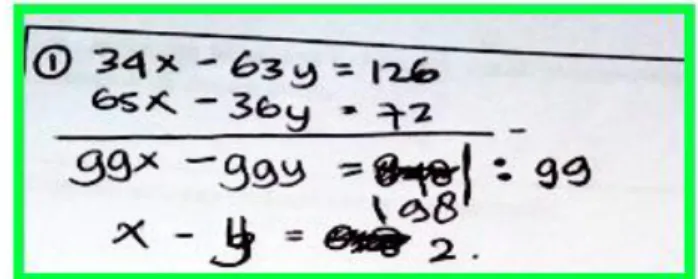 ① 34x - 63y = 126
65x - 36y = 72
-
99x - 99y = 198 | : 99
x - y = 2.